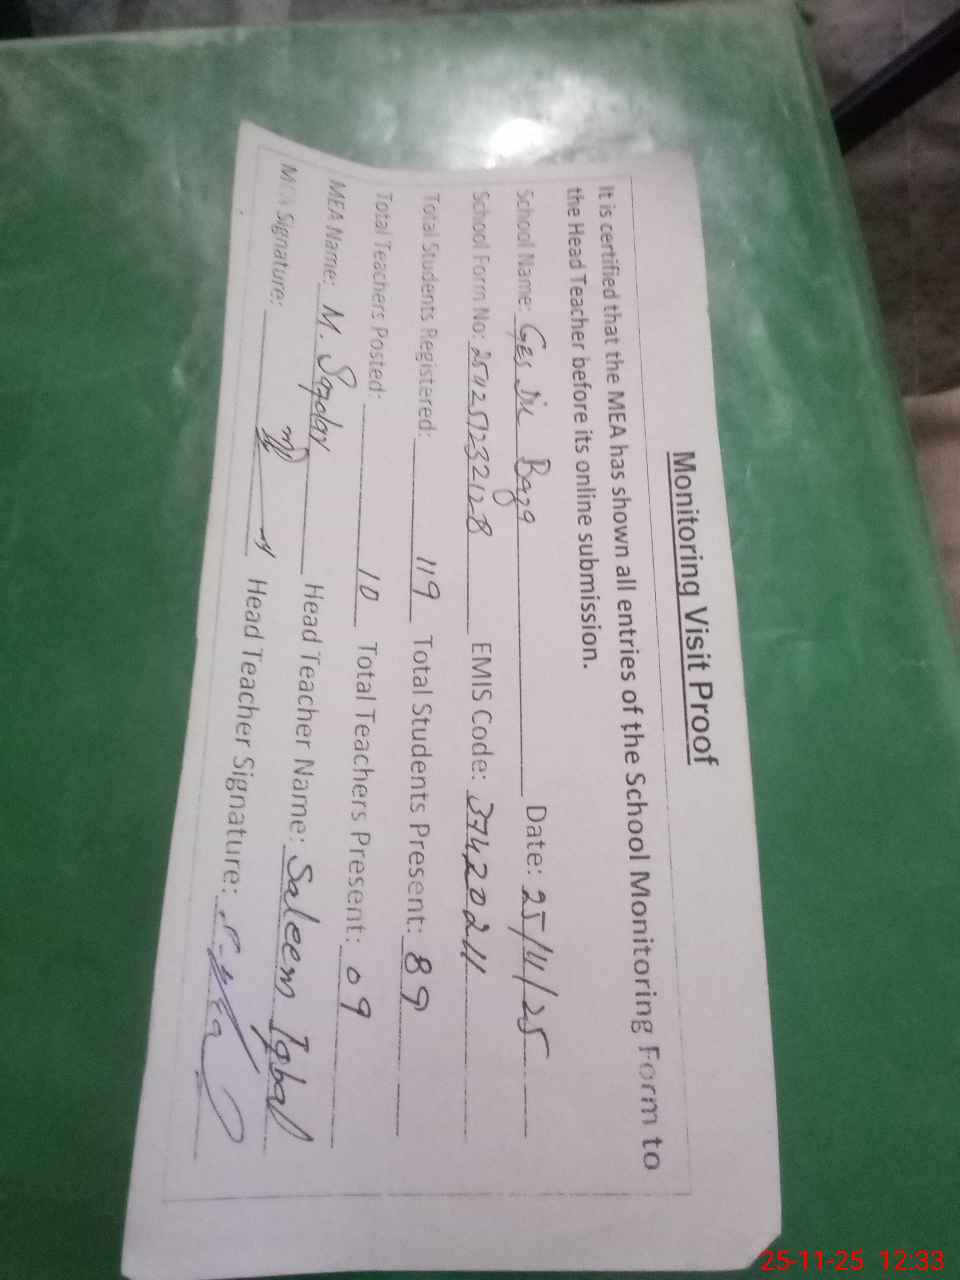 Monitoring Visit Proof
It is certified that the MEA has shown all entries of the School Monitoring Form to
the Head Teacher before its online submission.
School Name: Baza Date: 25/11/25
School Form No: EMIS Code: 37420211
Total Students Registered: 119 Total Students Present: 89
Total Teachers Posted: 10 Total Teachers Present: 09
MEA Name: M. Head Teacher Name: Saleem Iqbal
MEA Signature: Head Teacher Signature:
25-11-25 12:33